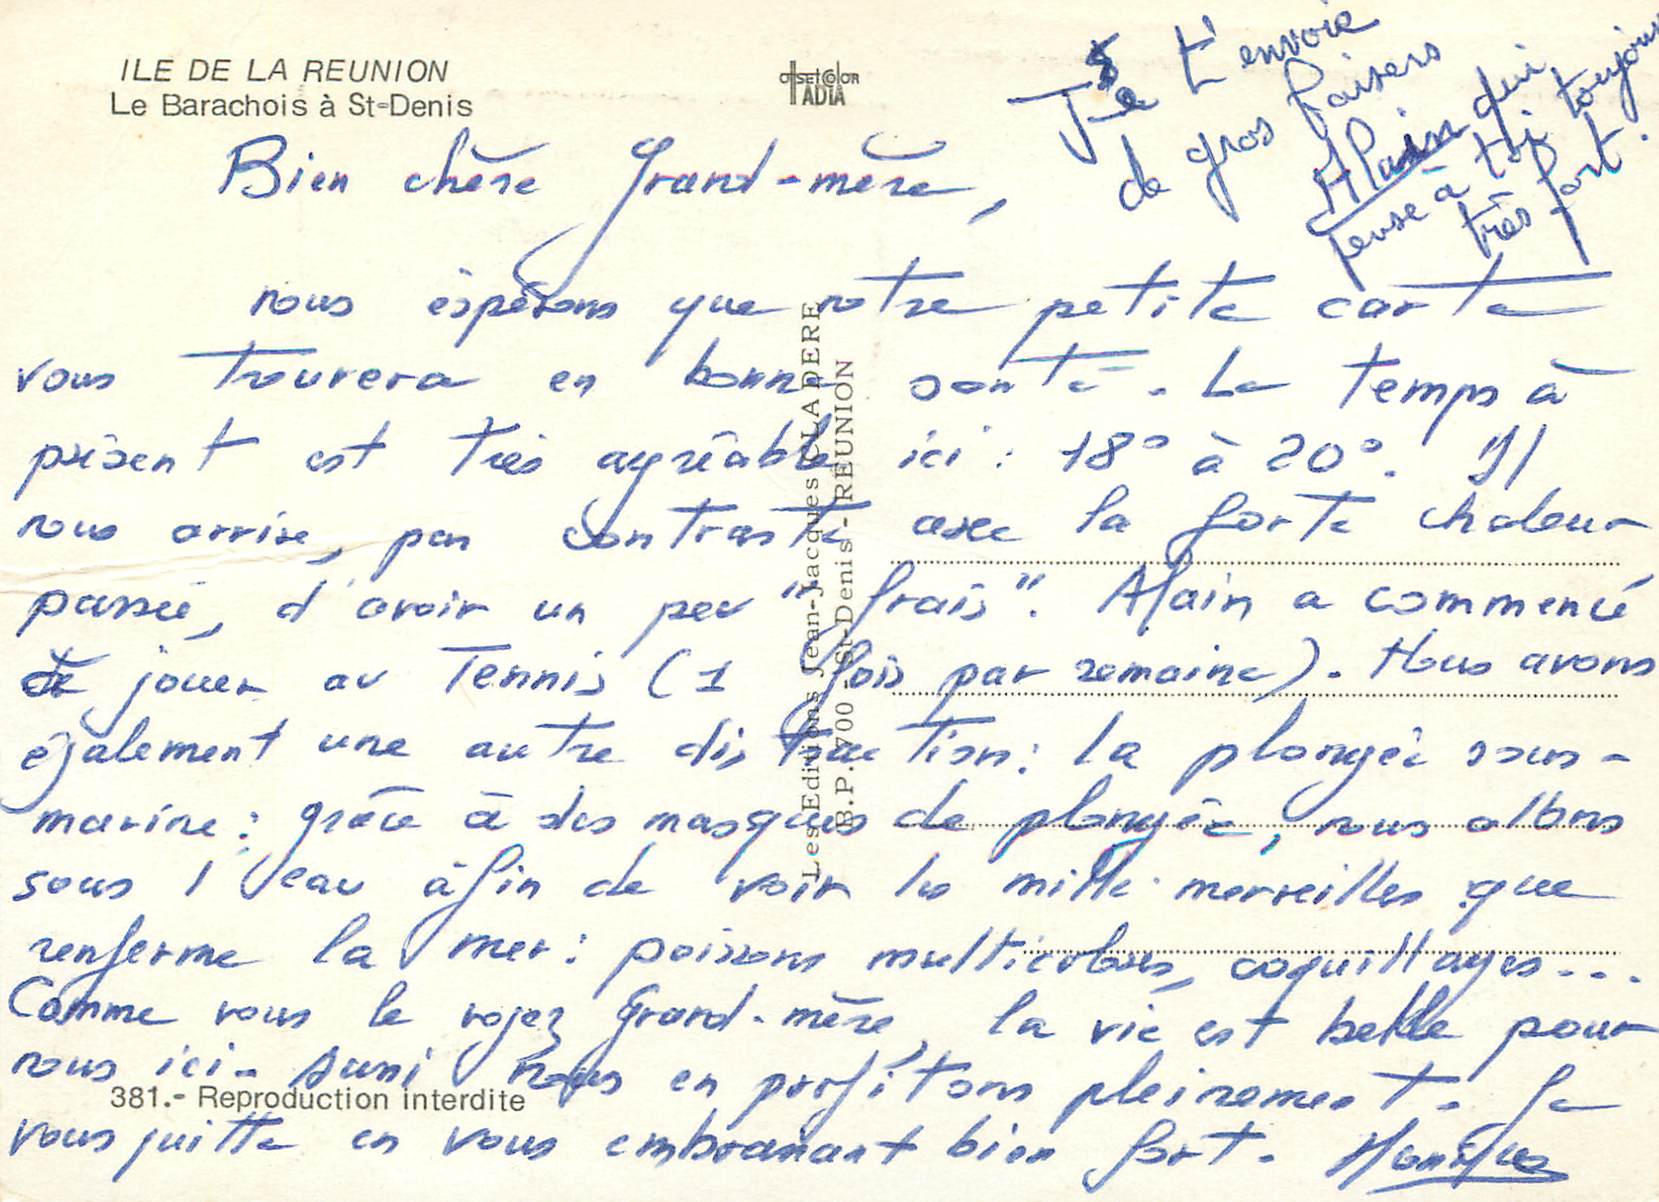 ILE DE LA REUNION
Le Barachois à St-Denis
offset color
ADIA
Je t'envoie
de gros baisers
Alain qui
pense à toi toujours
très fort.
Bien chère Grand-mère,
nous éspérons que notre petite carte
vous trouvera en bonne santé. Le temps à
présent est très agréable ici : 18° à 20°. Il
nous arrive, par contraste avec la forte chaleur
passée, d'avoir un peu "frais". Alain a commencé
de jouer au Tennis (1 fois par semaine). Nous avons
également une autre distraction : la plongée sous-
marine : grâce à des masques de plongée, nous allons
sous l'eau afin de voir les mille merveilles que
renferme la mer : poissons multicolores, coquillages...
Comme vous le voyez Grand-mère, la vie est belle pour
nous ici. Aussi nous en profitons pleinement. Je
vous quitte en vous embrassant bien fort. Monique
Les Editions Jean-Jacques CLADERE
B.P. 700 - St-Denis - REUNION
381.- Reproduction interdite